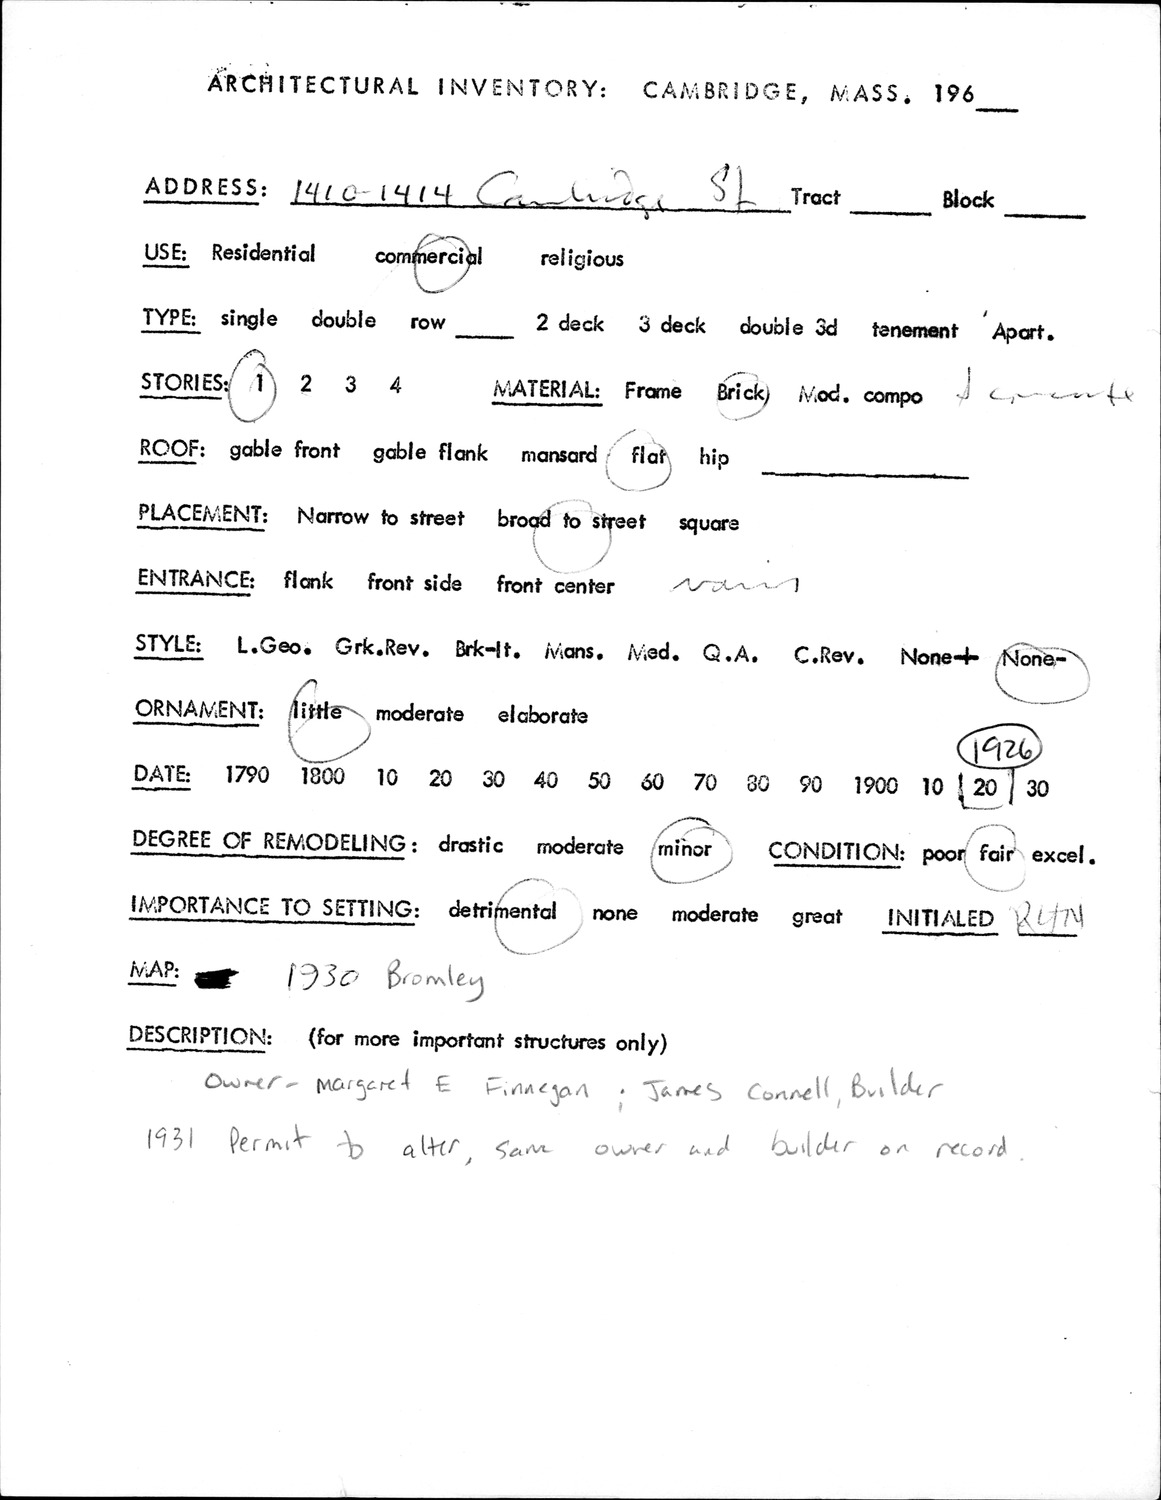 ARCHITECTURAL INVENTORY: CAMBRIDGE, MASS. 196___
ADDRESS: 1410-1414 Cambridge St Tract ______ Block ______
USE: Residential commercial religious
TYPE: single double row ____ 2 deck 3 deck double 3d tenement Apart.
STORIES: 1 2 3 4 MATERIAL: Frame Brick Mod. compo
ROOF: gable front gable flank mansard flat hip ______________
PLACEMENT: Narrow to street broad to street square
ENTRANCE: flank front side front center
STYLE: L.Geo. Grk.Rev. Brk-It. Mans. Med. Q.A. C.Rev. None+ None-
ORNAMENT: little moderate elaborate
1926
DATE: 1790 1800 10 20 30 40 50 60 70 80 90 1900 10 20 30
DEGREE OF REMODELING: drastic moderate minor CONDITION: poor fair excel.
IMPORTANCE TO SETTING: detrimental none moderate great INITIALED
MAP: 1930 Bromley
DESCRIPTION: (for more important structures only)
Owner - Margaret E Finnegan ; James Connell, Builder
1931 Permit to alter, same owner and builder on record.